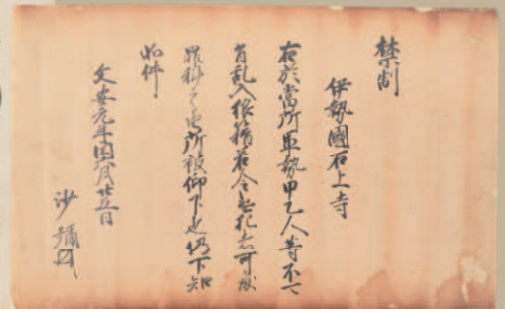 禁制
伊勢國石上寺
右於當所軍勢甲乙人等不可
有乱入狼藉若令違犯者可處
罪科之由所被仰下也仍下知
如件
文安元年閏六月廿五日
沙弥